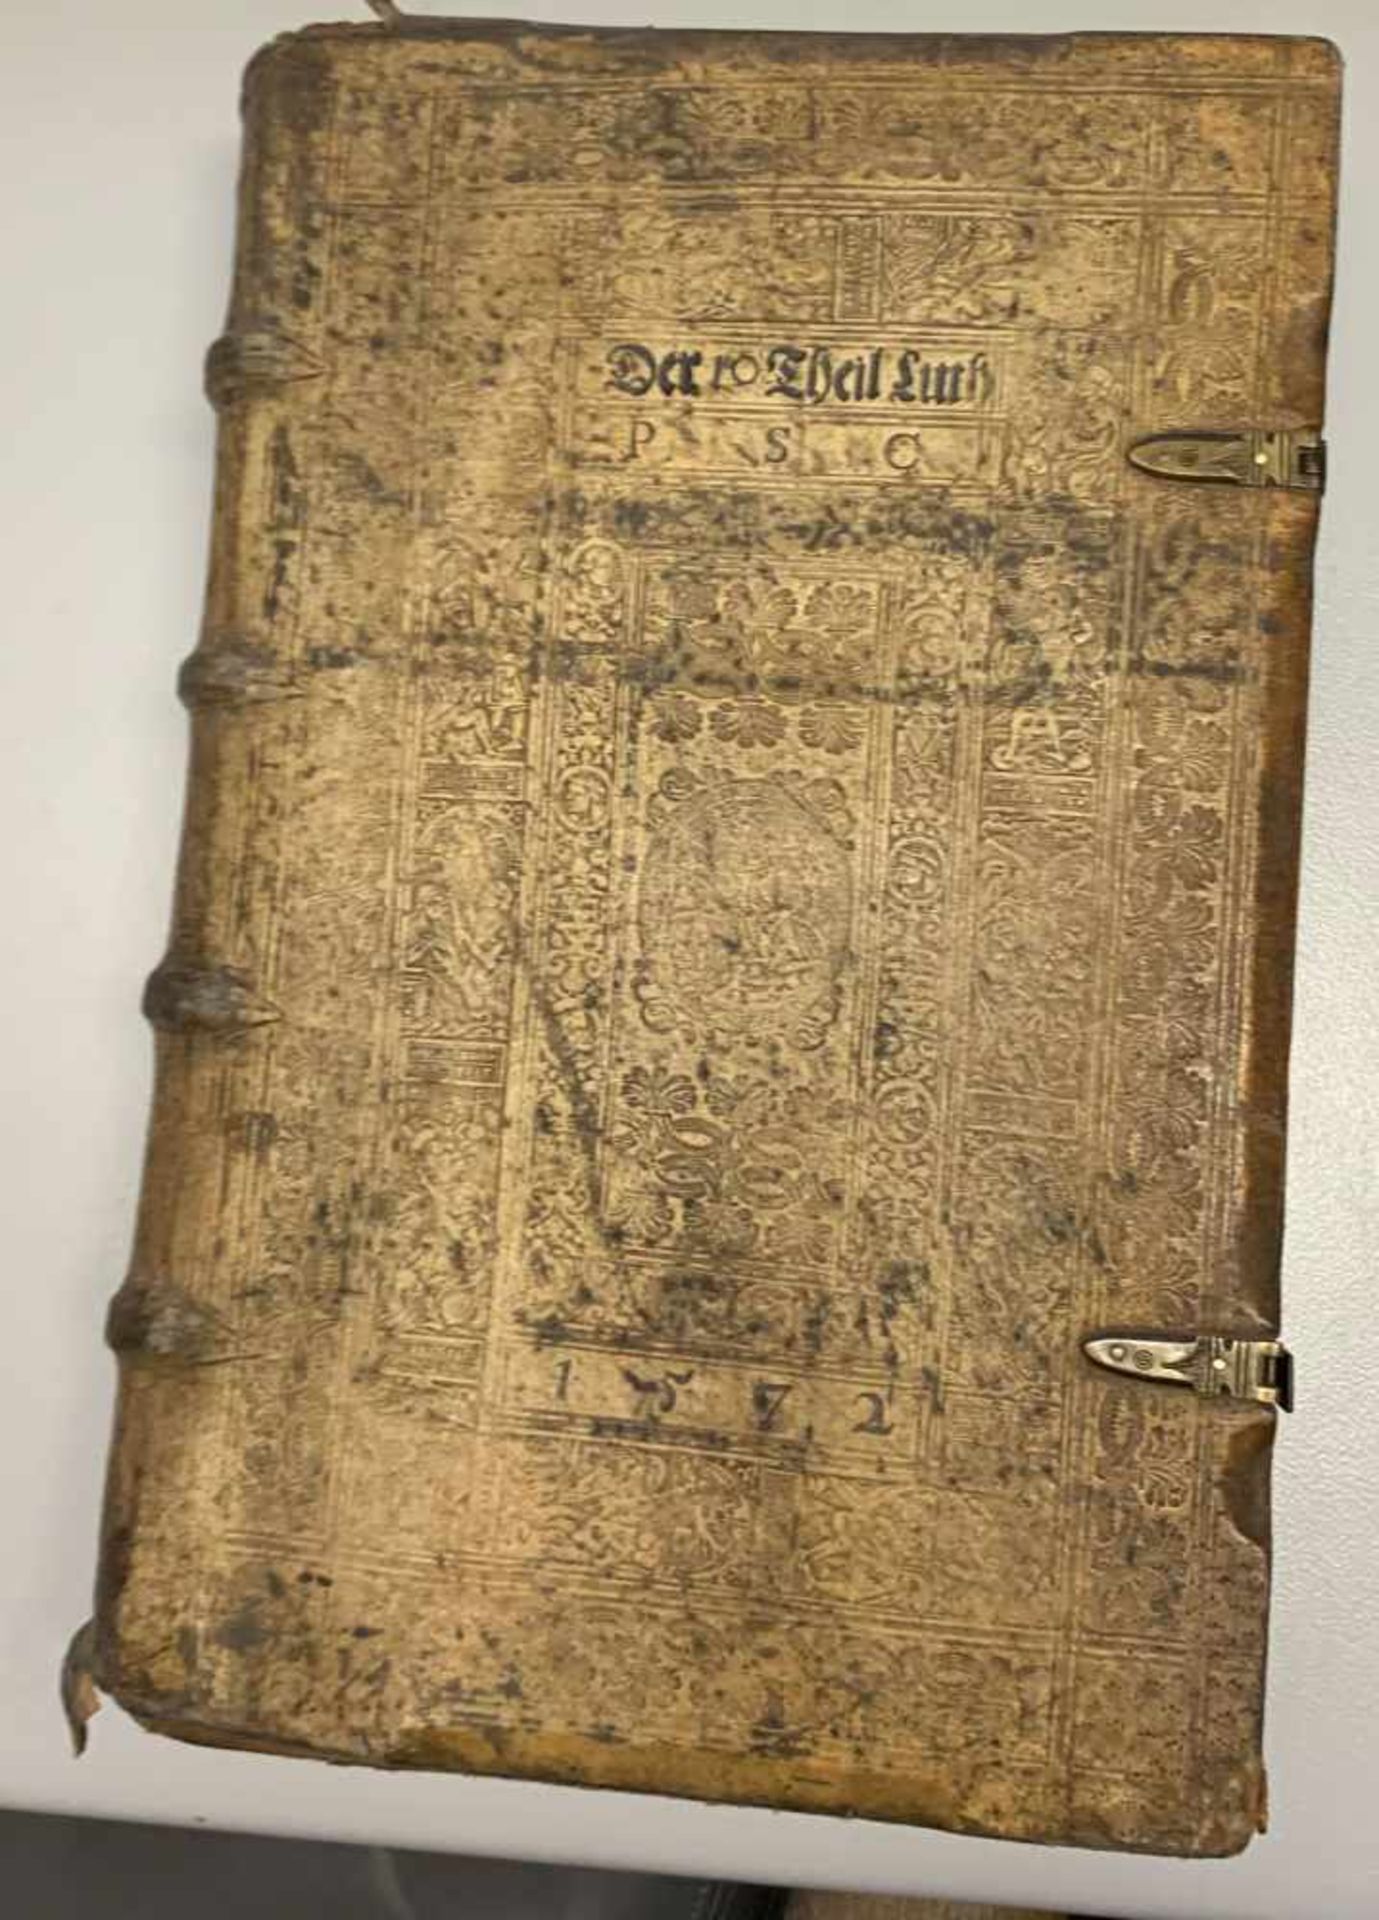 Der 10 Theil Luth
P S C
1 5 7 2